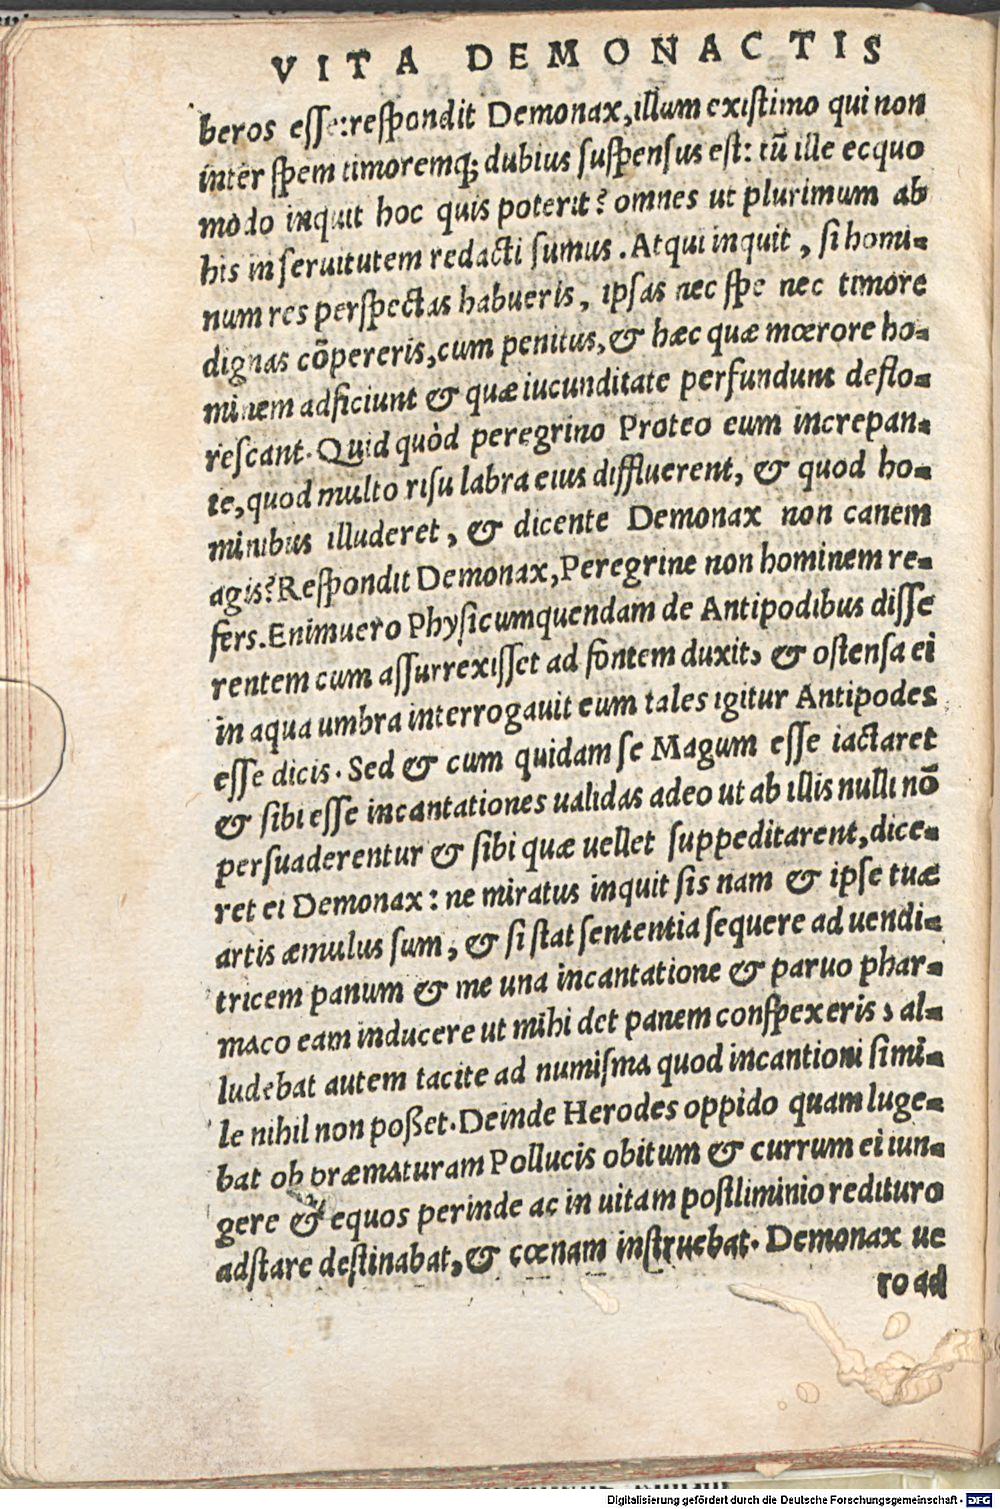 VITA DEMONACTIS
beros esse: respondit Demonax, illum existimo qui non
inter spem timoremq; dubius suspensus est: tū ille ecquo
modo inquit hoc quis poterit? omnes ut plurimum ab
his in seruitutem redacti sumus. Atqui inquit, si homi-
num res perspectas habueris, ipsas nec spe nec timore
dignas cōpereris, cum penitus, & hæc quæ mœrore ho-
minem adficiunt & quæ iucunditate perfundunt deflo-
rescant. Quid quòd peregrino Proteo eum increpan-
te, quod multo risu labra eius diffluerent, & quod ho-
minibus illuderet, & dicente Demonax non canem
agis? Respondit Demonax, Peregrine non hominem re-
fers. Enimuero Physicum quendam de Antipodibus disse
rentem cum assurrexisset ad fontem duxit, & ostensa ei
in aqua umbra interrogauit eum tales igitur Antipodes
esse dicis. Sed & cum quidam se Magum esse iactaret
& sibi esse incantationes ualidas adeo ut ab illis nulli nō
persuaderentur & sibi quæ uellet suppeditarent, dice-
ret ei Demonax: ne miratus inquit sis nam & ipse tuæ
artis æmulus sum, & si stat sententia sequere ad uendi-
tricem panum & me una incantatione & paruo phar-
maco eam inducere ut mihi det panem conspexeris, al-
ludebat autem tacite ad numisma quod incantioni simi-
le nihil non posset. Deinde Herodes oppido quam luge-
bat ob præmaturam Pollucis obitum & currum ei iun-
gere & equos perinde ac in uitam postliminio redituro
adstare destinabat, & cœnam instruebat. Demonax ue
ro ad
Digitalisierung gefördert durch die Deutsche Forschungsgemeinschaft - DFG